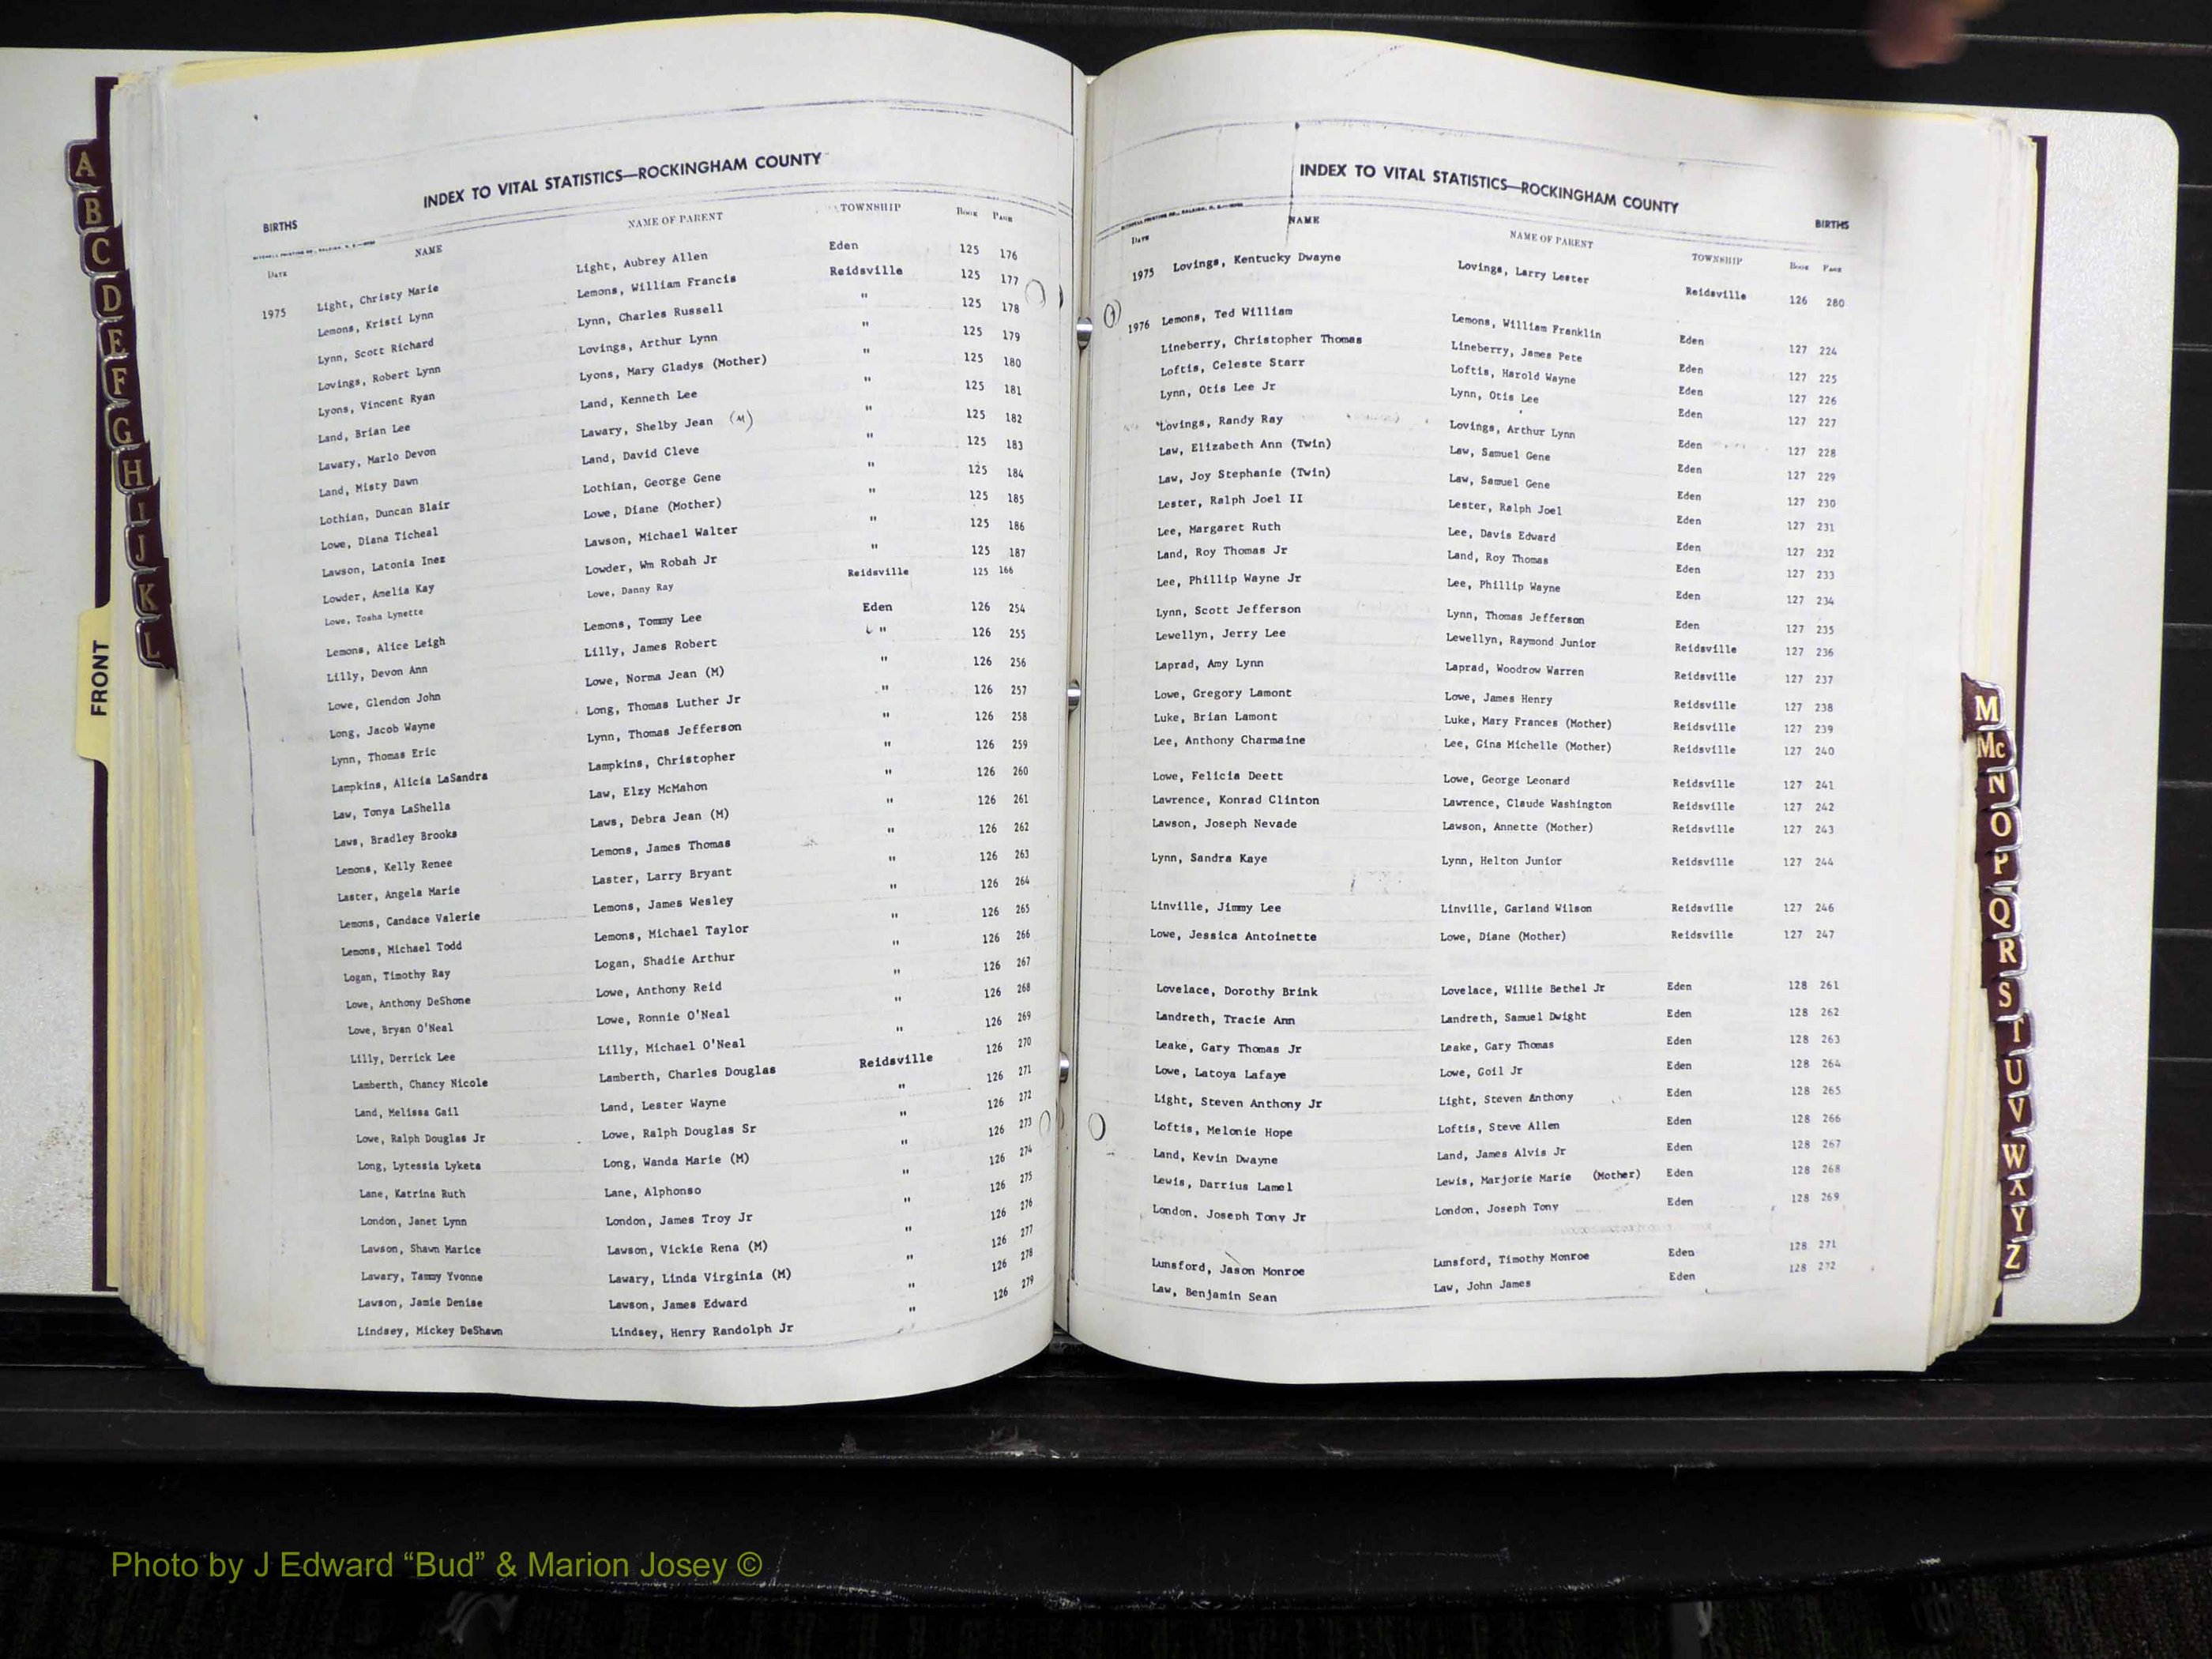 INDEX TO VITAL STATISTICS—ROCKINGHAM COUNTY
BIRTHS
DATE NAME NAME OF PARENT TOWNSHIP BOOK PAGE
1975 Light, Christy Marie Light, Aubrey Allen Eden 125 176
Lemons, Kristi Lynn Lemons, William Francis Reidsville 125 177
Lynn, Scott Richard Lynn, Charles Russell " 125 178
Lovings, Robert Lynn Lovings, Arthur Lynn " 125 179
Lyons, Vincent Ryan Lyons, Mary Gladys (Mother) " 125 180
Land, Brian Lee Land, Kenneth Lee " 125 181
Lawary, Marlo Devon Lawary, Shelby Jean (M) " 125 182
Land, Misty Dawn Land, David Cleve " 125 183
Lothian, Duncan Blair Lothian, George Gene " 125 184
Lowe, Diana Ticheal Lowe, Diane (Mother) " 125 185
Lawson, Latonia Inez Lawson, Michael Walter " 125 186
Lowder, Amelia Kay Lowder, Wm Robah Jr " 125 187
Lowe, Tosha Lynette Lowe, Danny Ray Reidsville 125 166
Lemons, Alice Leigh Lemons, Tommy Lee Eden 126 254
Lilly, Devon Ann Lilly, James Robert " 126 255
Lowe, Glendon John Lowe, Norma Jean (M) " 126 256
Long, Jacob Wayne Long, Thomas Luther Jr " 126 257
Lynn, Thomas Eric Lynn, Thomas Jefferson " 126 258
Lampkins, Alicia LaSandra Lampkins, Christopher " 126 259
Law, Tonya LaShella Law, Elzy McMahon " 126 260
Laws, Bradley Brooks Laws, Debra Jean (M) " 126 261
Lemons, Kelly Renee Lemons, James Thomas " 126 262
Laster, Angela Marie Laster, Larry Bryant " 126 263
Lemons, Candace Valerie Lemons, James Wesley " 126 264
Lemons, Michael Todd Lemons, Michael Taylor " 126 265
Logan, Timothy Ray Logan, Shadie Arthur " 126 266
Lowe, Anthony DeShone Lowe, Anthony Reid " 126 267
Lowe, Bryan O'Neal Lowe, Ronnie O'Neal " 126 268
Lilly, Derrick Lee Lilly, Michael O'Neal " 126 269
Lamberth, Chancy Nicole Lamberth, Charles Douglas Reidsville 126 270
Land, Melissa Gail Land, Lester Wayne " 126 271
Lowe, Ralph Douglas Jr Lowe, Ralph Douglas Sr " 126 272
Long, Lytessia Lyketa Long, Wanda Marie (M) " 126 273
Lane, Katrina Ruth Lane, Alphonso " 126 274
London, Janet Lynn London, James Troy Jr " 126 275
Lawson, Shawn Marice Lawson, Vickie Rena (M) " 126 276
Lawary, Tammy Yvonne Lawary, Linda Virginia (M) " 126 277
Lawson, Jamie Denise Lawson, James Edward " 126 278
Lindsey, Mickey DeShawn Lindsey, Henry Randolph Jr " 126 279
INDEX TO VITAL STATISTICS—ROCKINGHAM COUNTY
BIRTHS
DATE NAME NAME OF PARENT TOWNSHIP BOOK PAGE
1975 Lovings, Kentucky Dwayne Lovings, Larry Lester Reidsville 126 280
1976 Lemons, Ted William Lemons, William Franklin Eden 127 224
Lineberry, Christopher Thomas Lineberry, James Pete Eden 127 225
Loftis, Celeste Starr Loftis, Harold Wayne Eden 127 226
Lynn, Otis Lee Jr Lynn, Otis Lee Eden 127 227
Lovings, Randy Ray Lovings, Arthur Lynn Eden 127 228
Law, Elizabeth Ann (Twin) Law, Samuel Gene Eden 127 229
Law, Joy Stephanie (Twin) Law, Samuel Gene Eden 127 230
Lester, Ralph Joel II Lester, Ralph Joel Eden 127 231
Lee, Margaret Ruth Lee, Davis Edward Eden 127 232
Land, Roy Thomas Jr Land, Roy Thomas Eden 127 233
Lee, Phillip Wayne Jr Lee, Phillip Wayne Eden 127 234
Lynn, Scott Jefferson Lynn, Thomas Jefferson Eden 127 235
Lewellyn, Jerry Lee Lewellyn, Raymond Junior Reidsville 127 236
Laprad, Amy Lynn Laprad, Woodrow Warren Reidsville 127 237
Lowe, Gregory Lamont Lowe, James Henry Reidsville 127 238
Luke, Brian Lamont Luke, Mary Frances (Mother) Reidsville 127 239
Lee, Anthony Charmaine Lee, Gina Michelle (Mother) Reidsville 127 240
Lowe, Felicia Deett Lowe, George Leonard Reidsville 127 241
Lawrence, Konrad Clinton Lawrence, Claude Washington Reidsville 127 242
Lawson, Joseph Nevade Lawson, Annette (Mother) Reidsville 127 243
Lynn, Sandra Kaye Lynn, Helton Junior Reidsville 127 244
Linville, Jimmy Lee Linville, Garland Wilson Reidsville 127 246
Lowe, Jessica Antoinette Lowe, Diane (Mother) Reidsville 127 247
Lovelace, Dorothy Brink Lovelace, Willie Bethel Jr Eden 128 261
Landreth, Tracie Ann Landreth, Samuel Dwight Eden 128 262
Leake, Gary Thomas Jr Leake, Gary Thomas Eden 128 263
Lowe, Latoya Lafaye Lowe, Goil Jr Eden 128 264
Light, Steven Anthony Jr Light, Steven Anthony Eden 128 265
Loftis, Melonie Hope Loftis, Steve Allen Eden 128 266
Land, Kevin Dwayne Land, James Alvis Jr Eden 128 267
Lewis, Darrius Lamel Lewis, Marjorie Marie (Mother) Eden 128 268
London, Joseph Tony Jr London, Joseph Tony Eden 128 269
Lunsford, Jason Monroe Lunsford, Timothy Monroe Eden 128 271
Law, Benjamin Sean Law, John James Eden 128 272
A
B
C
D
E
F
G
H
I
J
K
L
FRONT
M
Mc
N
O
P
Q
R
S
T
U
V
W
X
Y
Z
Photo by J Edward “Bud” & Marion Josey ©